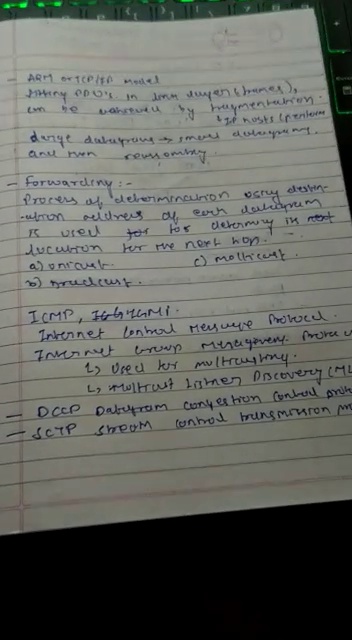 - ARM or TCP/IP model
fitting PDU's in link layer (frames),
can be achieved by fragmentation.
↳ IP hosts (perform
large datagrams → small datagrams
and then reassembly.
- Forwarding :-
Process of determination using destin-
-ation address of each datagram
is used for to determine its next
location for the next hop.
a) unicast. c) multicast.
b) broadcast.
ICMP, IGMP.
Internet Control Message Protocol.
Internet Group Management Protocol
↳ Used for multicasting.
↳ Multicast Listner Discovery (ML
- DCCP Datagram congestion control proto
- SCTP Stream control transmission pro